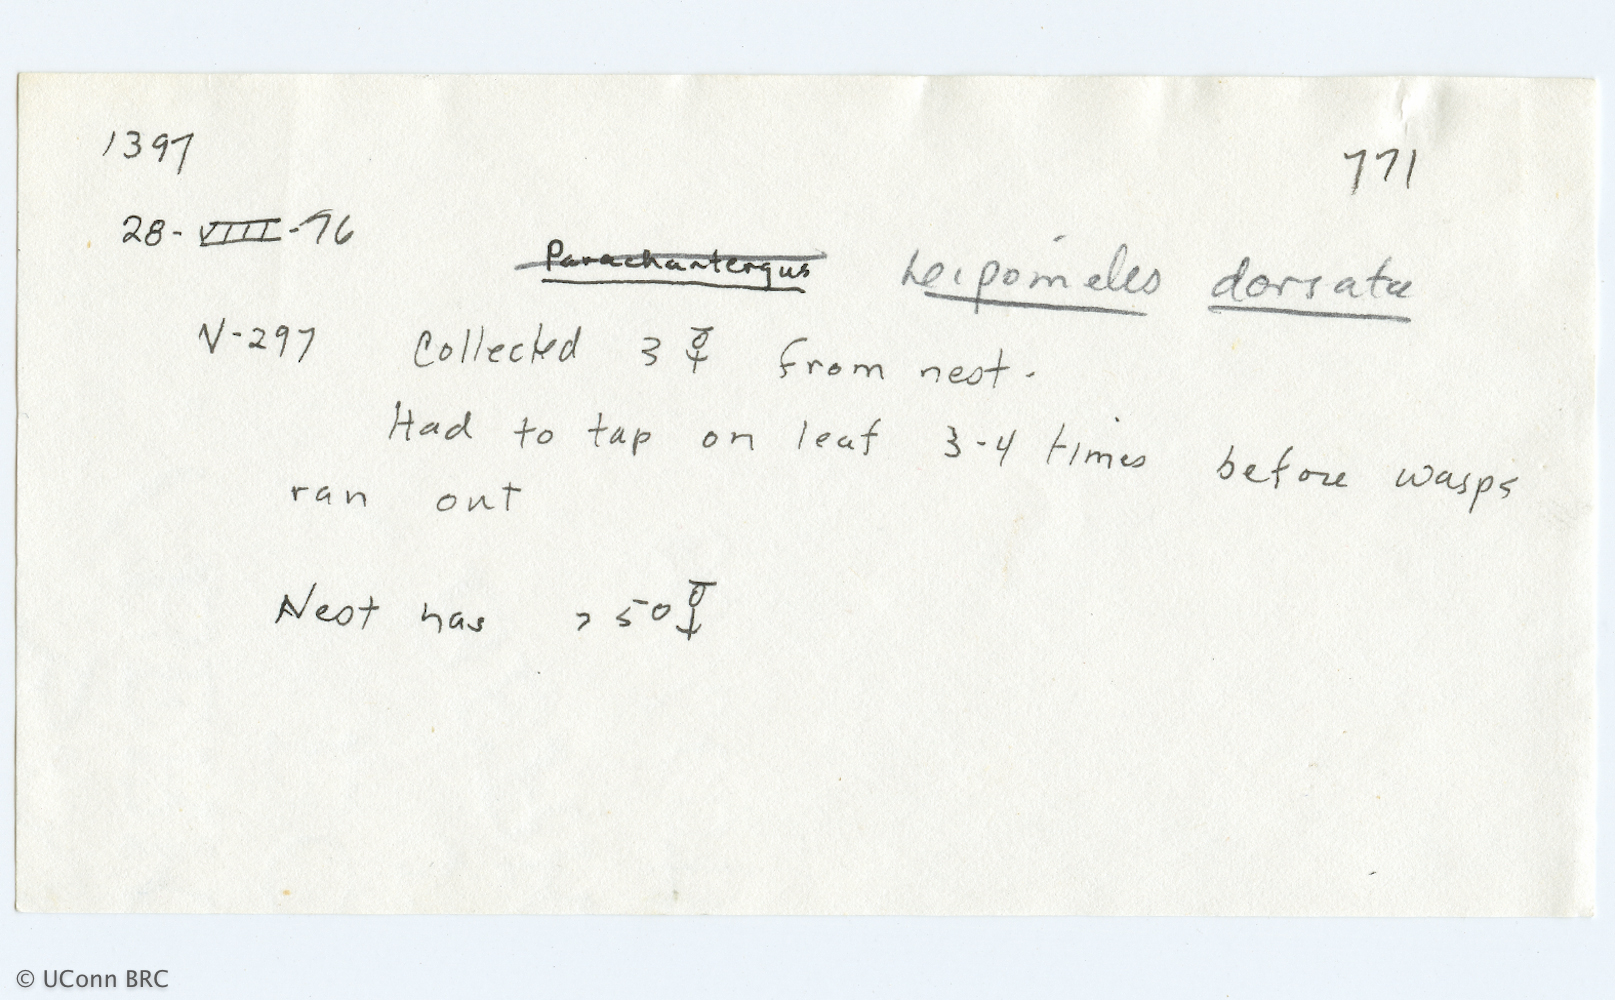 1397
771
28-VIII-76
Parachartergus Leipomeles dorsata
N-297 Collected 3 ☿ from nest.
Had to tap on leaf 3-4 times before wasps
ran out
Nest has > 50 ☿
© UConn BRC